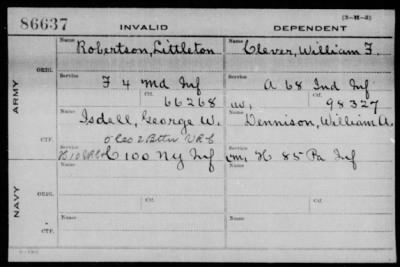 [3-H-3]
86637 INVALID DEPENDENT
Name Robertson, Littleton Name Clever, William F.
ORIG. Service F 4 Md Inf Service A 68 Ind Inf
Ctf. 66268 Ctf. 98327
ARMY
Name Isdell, George W. Name Dennison, William A.
CTF. Co 2 Battn V R C
C 100 Ny Inf H 85 Pa Inf
Name Name
NAVY
ORIG. Service Ctf. Service Ctf.
Name Name
CTF.